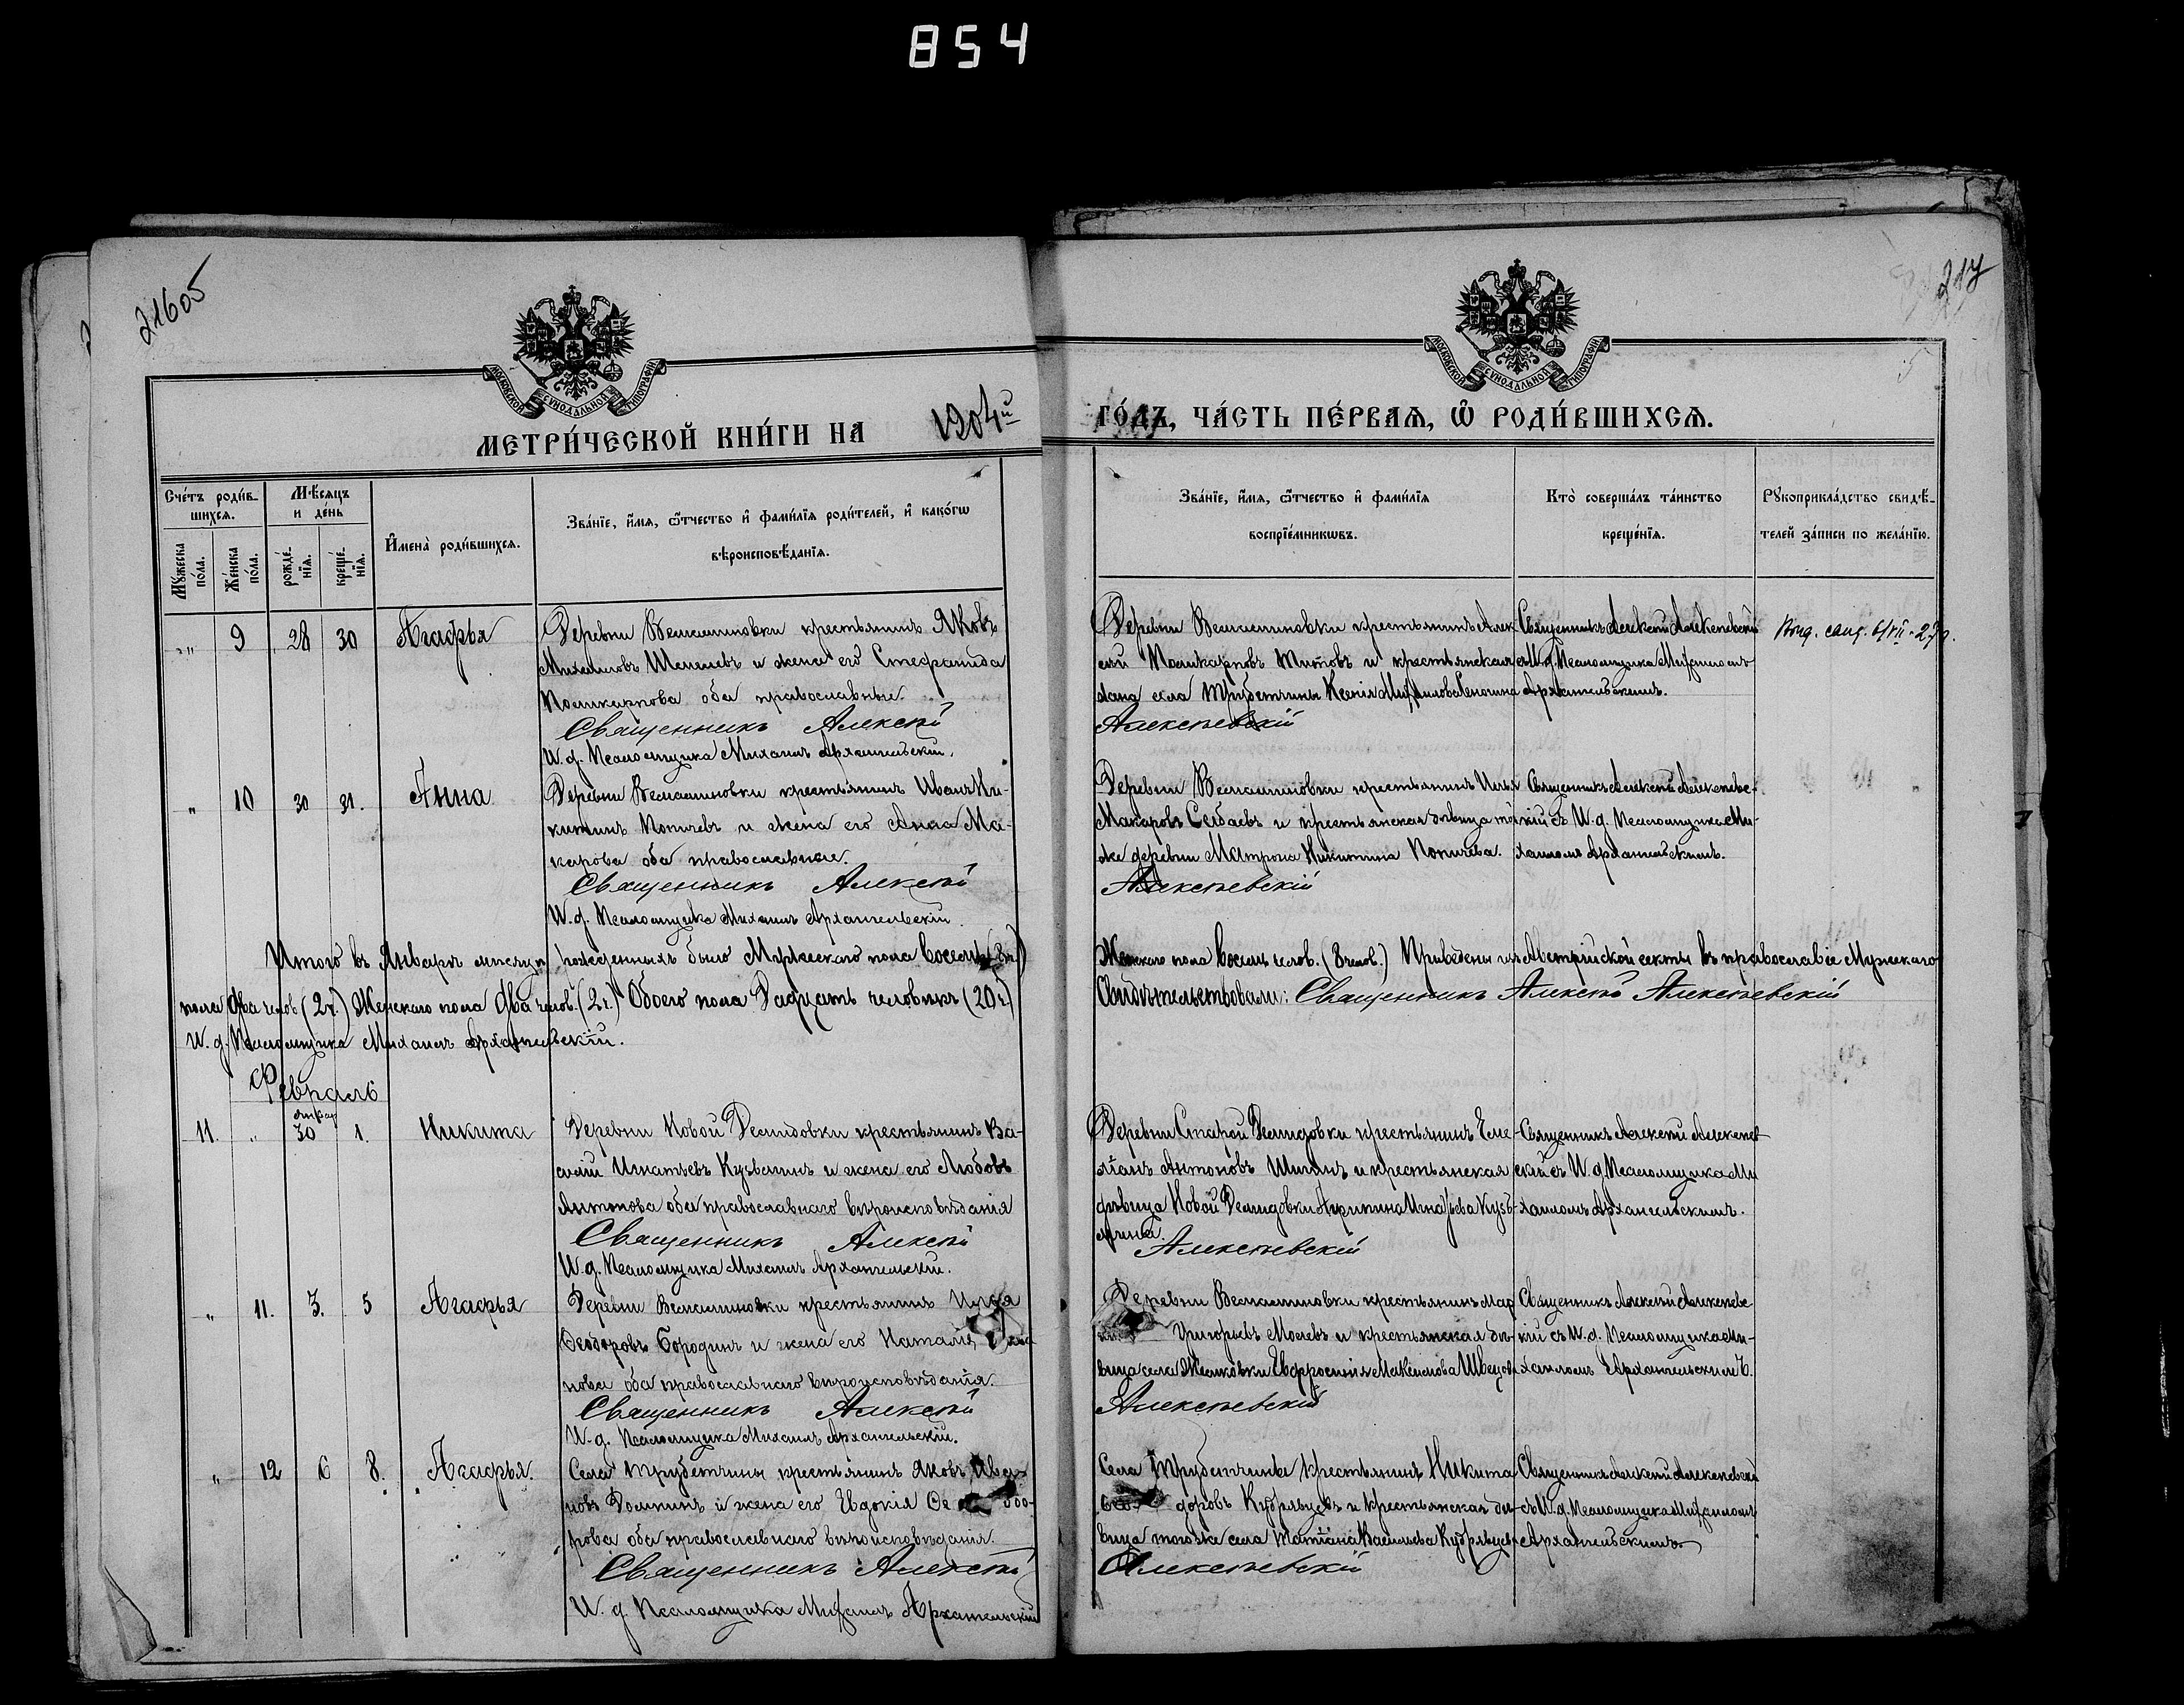 854
21605
217
МОСКОВСКОЙ СѴНОДАЛЬНОЙ ТИПОГРАФІИ
МОСКОВСКОЙ СѴНОДАЛЬНОЙ ТИПОГРАФІИ
МЕТРИ́ЧЕСКОЙ КНИ́ГИ НА 1904й ГО́ДЪ, ЧА́СТЬ ПЕ́РВАѦ, Ѽ РОДИ́ВШИХСѦ.
Сче́тъ роди́в-
шихсѧ.
Мѣ́сѧцъ
и де́нь
Мꙋ́жеска по́ла.
Же́нска по́ла.
рожде́-нїѧ.
креще́-нїѧ.
И҆мена̀ роди́вшихсѧ.
Зва́нїе, и҆́мѧ, ѻ҆́тчество и҆ фами́лїѧ роди́телей, и҆ како́гѡ
вѣроисповѣ́данїѧ.
Зва́нїе, и҆́мѧ, ѻ҆́тчество и҆ фами́лїѧ
воспрїе́мникѡвъ.
Кто̀ соверша́лъ та́инство
креще́нїѧ.
Рꙋкоприкла́дство свидѣ́-
телей за́писи по жела́нїю.
„ 9 28 30 Агафья
Деревни крестьянинъ Яковъ
Михаиловъ и жена его Стефанида
Поликарпова оба православные.
Священникъ Алексѣй
И. д. Псаломщика Михаилъ Архангельскій.
Деревни крестьянинъ Алек
сѣй Поликарповъ Титовъ и крестьянская
села Трубетчины Ксенія Михаилова
Алексѣевскій
Священникъ Алексѣй Алексѣевскій
съ И. д. Псаломщика Михаиломъ
Архангельскимъ.
„ 10 30 31. Анна
Деревни крестьянинъ Иванъ Ни-
китинъ Попичевъ и жена его Анна Ма-
карова оба православные.
Священникъ Алексѣй
И. д. Псаломщика Михаилъ Архангельскій.
Деревни крестьянинъ Илья
Макаровъ и крестьянская дѣвица той
же деревни Матрона Никитина Попичева.
Алексѣевскій
Священникъ Алексѣй Алексѣевс-
кій съ И. д. Псаломщика Ми-
хаиломъ Архангельскимъ.
Итого въ Январѣ мѣсяцѣ рожденныхъ было Мужескаго пола восемь Женскаго пола восемь челов. (8 челов.) Приведены изъ Австрійской секты въ православіе Мужескаго
пола два челов (2 ч.) Женскаго пола два челов. (2 ч.) Обоего пола Дадцать человѣкъ (20 ч.) Свидѣтельствовали: Священникъ Алексѣй Алексѣевскій
И. д. Псаломщика Михаилъ Архангельскій.
Февраль
11. „ Январ 30 1. Никита
Деревни Новой Демидовки крестьянинъ Ва-
силій Игнатьевъ Кузьминъ и жена его Любовь
Антонова оба православнаго вѣроисповѣданія
Священникъ Алексѣй
И. д. Псаломщика Михаилъ Архангельскій.
Деревни Старой Демидовки крестьянинъ Еме-
ліанъ Антоновъ и крестьянская
дѣвица Новой Демидовки Игнатьева Кузь-
мина.
Алексѣевскій
Священникъ Алексѣй Алексѣев
скій съ И. д. Псаломщика Ми
хаиломъ Архангельскимъ.
„ 11. 3. 5 Агафья
Деревни крестьянинъ Илья
Ѳеодоровъ Бородинъ и жена его Наталія
нова оба православнаго вѣроисповѣданія.
Священникъ Алексѣй
И. д. Псаломщика Михаилъ Архангельскій.
Деревни крестьянинъ Мар
Григорьевъ и крестьянская дѣ-
вица села Евфросинія Максимова Швецов
Алексѣевскій
Священникъ Алексѣй Алексѣевс
кій съ И. д. Псаломщика Ми-
хаиломъ Архангельскимъ.
„ 12 6 8. Агафья.
Села Трубетчины крестьянинъ Яковъ Ива-
новъ и жена его Евдокія Ѳе одо-
рова оба православнаго вѣроисповѣданія.
Священникъ Алексѣй
И. д. Псаломщика Михаилъ Архангельскій
Села Трубетчины крестьянинъ Никита
доровъ Кудрявцевъ и крестьянская дѣ-
вица тогоже села Татіана Васильева Кудрявцев
Алексѣевскій
Священникъ Алексѣй Алексѣевскій
съ И. д. Псаломщика Михаиломъ
Архангельскимъ